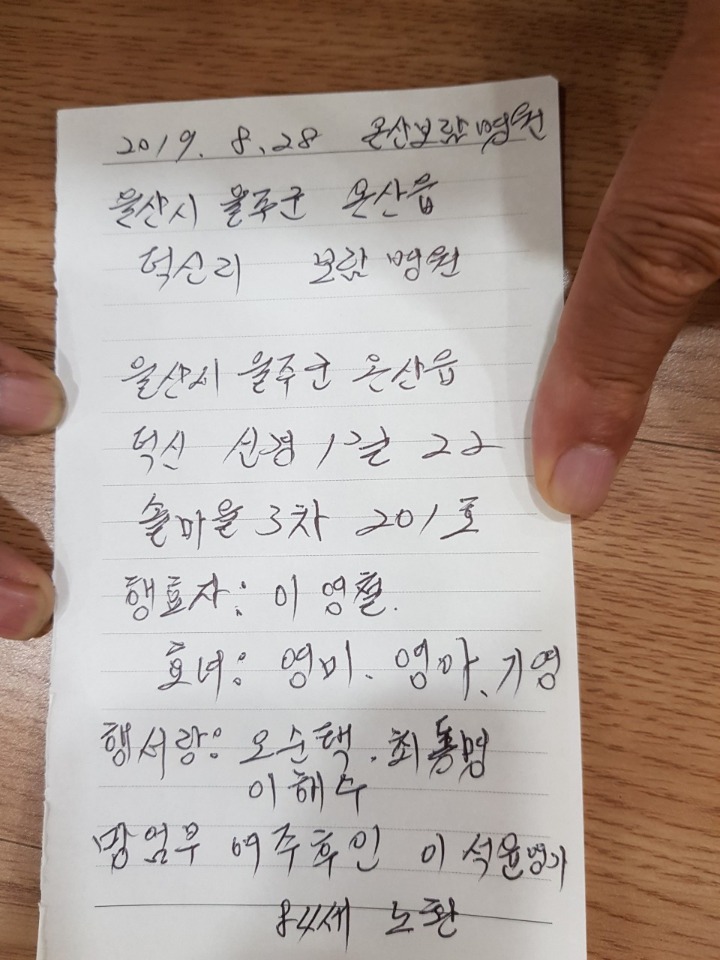 2019. 8. 28 온산보람병원
울산시 울주군 온산읍
덕신리 보람병원
울산시 울주군 온산읍
덕신 신경 1길 22
솔마을 3차 201호
행효자: 이영철.
효녀: 영미. 영마. 기영
행서랑: 오순택. 최통명
이해수
망엄부 여주후인 이석윤영가
84세 노환